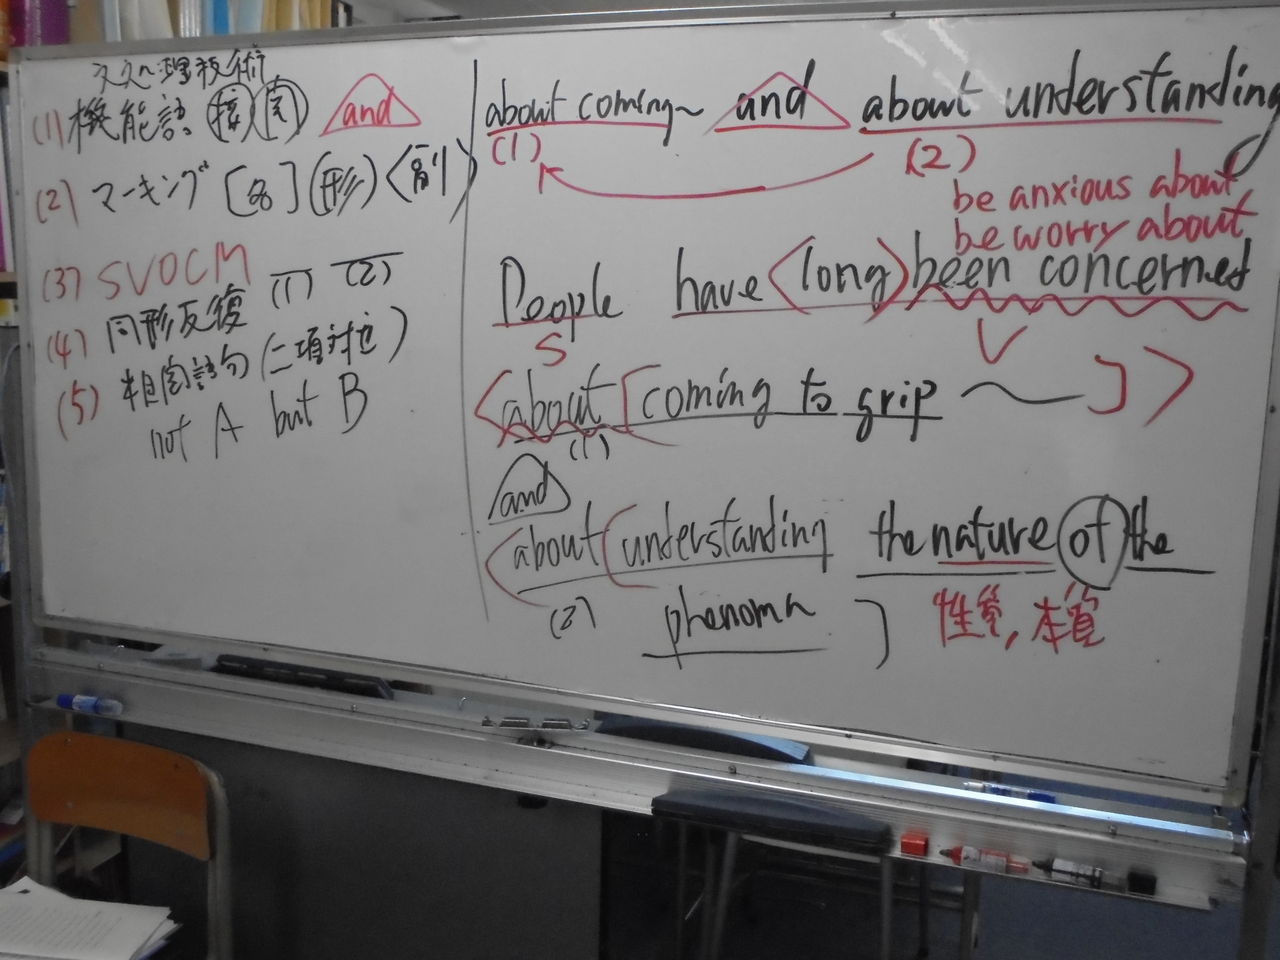 文処理技術
(1) 機能語 接 関 and
(2) マーキング [名] (形) <副>
(3) SVOCM
(4) 同形反復 (1) (2)
(5) 相関語句 (二項対立)
not A but B
about coming~ and about understanding
(1) (2)
be anxious about
be worry about
People have <long> been concerned
S V
<about [coming to grip ~ ]>
(1)
and
<about [understanding the nature of the
(2) phenoma ] 性質, 本質